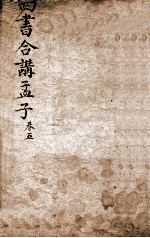 四書合講孟子卷五